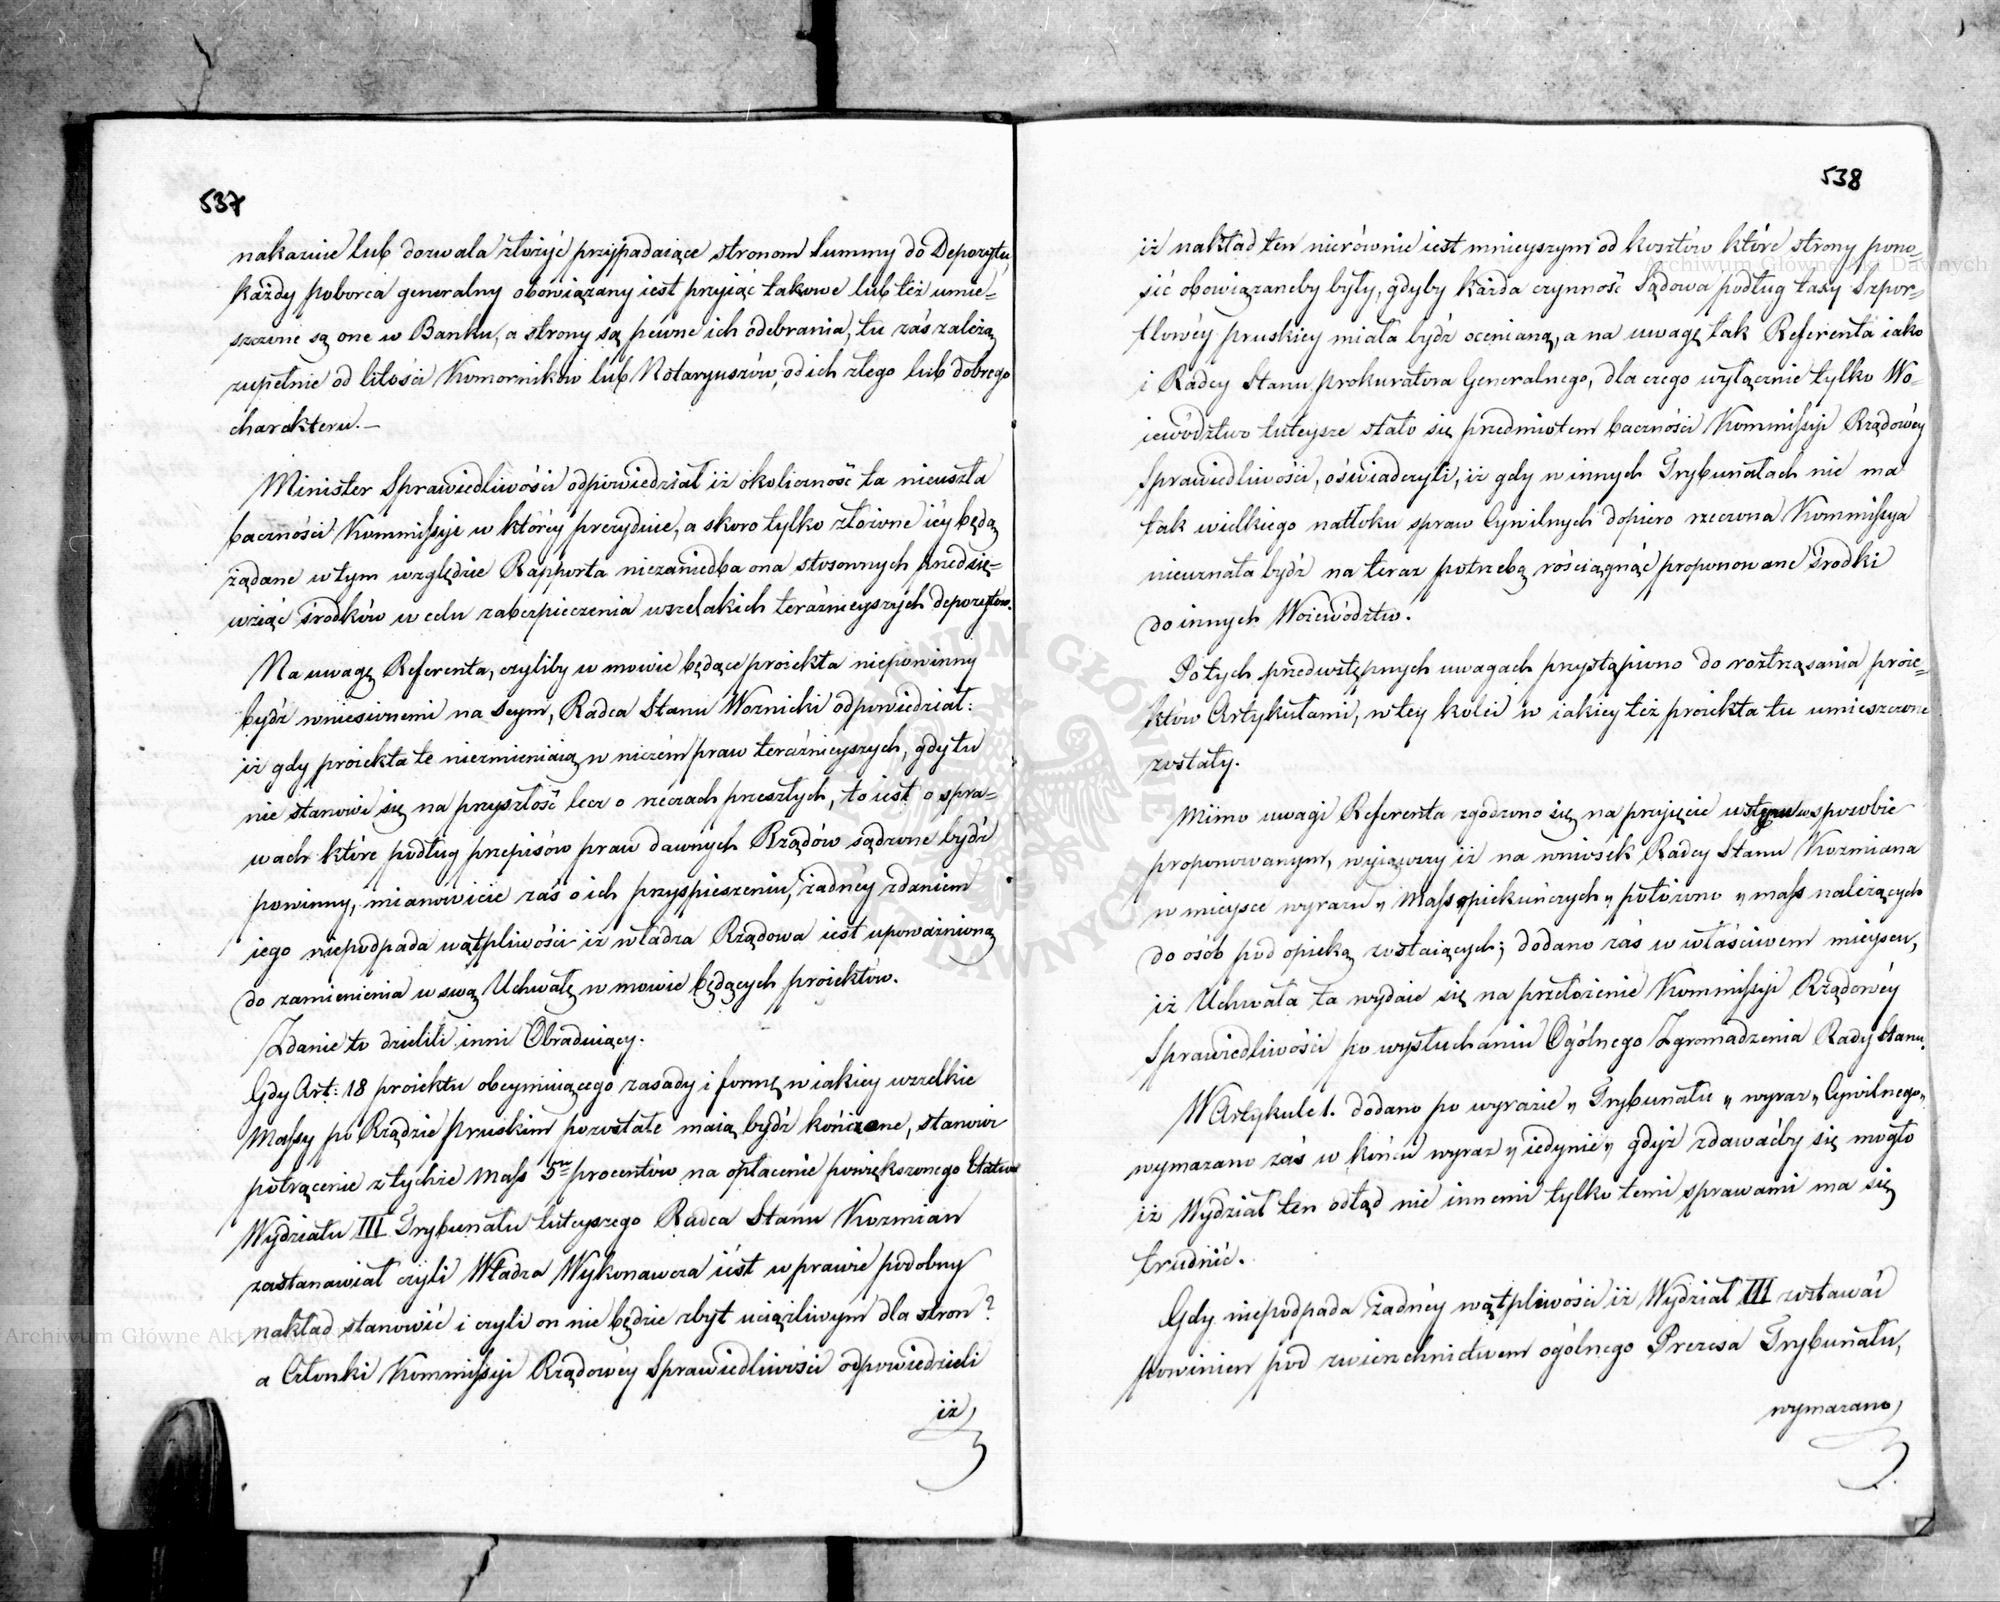 537
nakazuie lub dozwala złożyć przypadaiące stronom Summy do Depozytu,
każdy poborca generalny obowiązany iest przyiąć takowe lub też umie=
szczone są one w Banku, a strony są pewne ich odebrania, tu zaś zależą
zupełnie od litości Komorników lub Notaryuszów, od ich złego lub dobrego
charakteru.—
Minister Sprawiedliwości odpowiedział iż okoliczność ta nieuszła
baczności Kommissyi w którey prezyduie, a skoro tylko złożone iéy będą
żądane w tym względzie Rapporta niezaniedba ona stosownych przedsię=
wziąć środków w celu zabezpieczenia wszelakich teraźnieyszych depozytów.
Na uwagę Referenta, czyliby w mowie będące proiekta niepowinny
bydź wniesionemi na Seym, Radca Stanu Woznicki odpowiedział:
iż gdy proiekta te niezmieniaią w niczém praw teraźnieyszych, gdy tu
nie stanowi się na przyszłość lecz o rzeczach przeszłych, to iest o spra=
wach które podług przepisów praw dawnych Rządów sądzone bydź
powinny, mianowicie zaś o ich przyspieszeniu, żadnéy zdaniem
iego niepodpada wątpliwości iż władza Rządowa iest upoważnioną
do zamienienia w swą Uchwałę w mowie będących proiektów.
Zdanie to dzielili inni Obraduiący.
Gdy Art: 18 proiektu obeymuiącego zasady i formę w iakiey wszelkie
Massy po Rządzie pruskim pozostałe maią bydź kończone, stanowi
potrącenie z tychże mass 5iu procentów na opłacenie powiększonego Etatu
Wydziału III Trybunału tuteyszego Radca Stanu Kozmian
zastanawiał czyli Władza Wykonawcza iest w prawie podobny
nakład stanowić i czyli on nie będzie zbyt uciążliwym dla stron?
a Członki Kommissyi Rządowéy Sprawiedliwości odpowiedzieli
iż
538
iż nakład ten nierównie iest mnieyszym od kosztów które strony pono=
sić obowiązaneby były, gdyby każda czynność Sądowa podług taxy Szpor=
tlowéy pruskiey miała bydź ocenianą, a na uwagę tak Referenta iako
i Radcy Stanu prokuratora Generalnego, dla czego wyłącznie tylko Wo=
iewództwo tuteysze stało się przedmiotem baczności Kommissyi Rządowéy
Sprawiedliwości, oświadczyli, iż gdy w innych Trybunałach nie ma
tak wielkiego natłoku spraw Cywilnych dopiero rzeczona Kommissya
nieuznała bydź na teraz potrzebą rościągnąć proponowane środki
do innych Woiewództw.
Po tych przedwstępnych uwagach przystąpiono do roztrząsania proie=
któw Artykułami, w tey kolei w iakiey też proiekta tu umieszczone
zostały.
Mimo uwagi Referenta zgodzono się na przyięcie wstępu w sposobie
proponowanym, wyiąwszy iż na wniosek Radcy Stanu Kozmiana
w mieysce wyrazu „ Mass opiekuńczych „ położono „ mass należących
do osób pod opieką zostaiących; dodano zaś w właściwem mieyscu,
iż Uchwała ta wydaie się na przełożenie Kommissyi Rządowéy
Sprawiedliwości po wysłuchaniu Ogólnego Zgromadzenia Rady Stanu.
W Artykule 1. dodano po wyrazie „ Trybunału „ wyraz „ Cywilnego „
wymazano zaś w końcu wyraz „ iedynie „ gdyż zdawaćby się mogło
iż Wydział ten odtąd nie innemi tylko temi sprawami ma się
trudnić.
Gdy niepodpada żadnéy wątpliwości iż Wydział III zostawać
powinien pod zwierzchnictwem ogólnego Prezesa Trybunału,
wymazano
Archiwum Główne Akt Dawnych
Archiwum Główne Akt Dawnych
ARCHIWUM GŁÓWNE AKT DAWNYCH